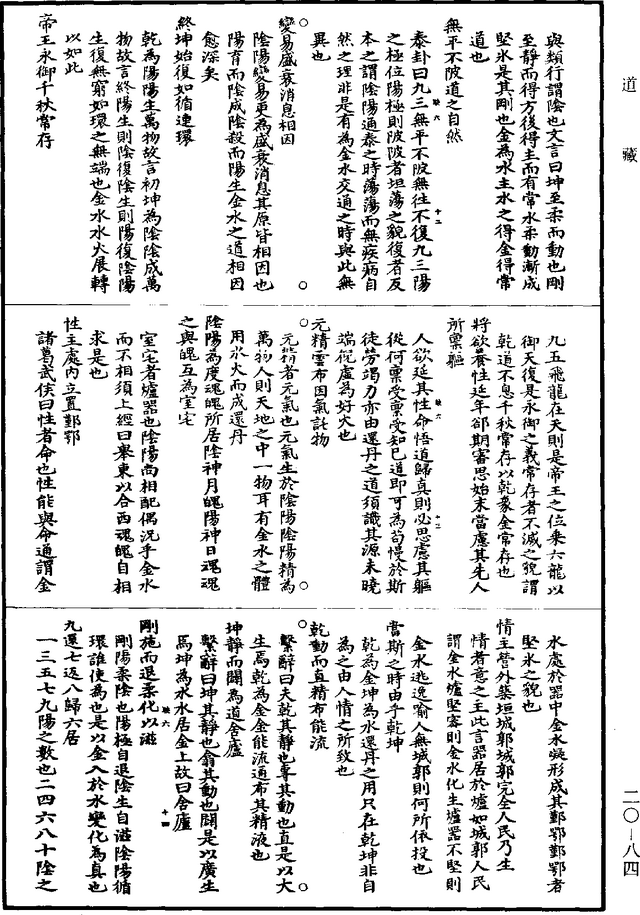 道藏
與類行謂陰也文言曰坤至柔而動也剛
至靜而得方後得主而有常水柔動漸成
堅氷是其剛也金為水主水之得金得常
道也
無平不陂道之自然
泰卦曰九三無平不陂無往不復九三陽
之極位陽極則陂陂者坦蕩之貌復者反
本之謂陰陽通泰之時蕩蕩而無疾病自
然之理非是有為金水交通之時與此無
異也
變易盛衰消息相因
陰陽變易更為盛衰消息其原皆相因也
陽育而陰成陰殺而陽生金水之道相因
愈深矣
終坤始復如循連環
乾為陽陽生萬物故言初坤為陰陰成萬
物故言終陽生則陰復陰生則陽復陰陽
生復無窮如環之無端也金水水火展轉
以如此
帝王永御千秋常存
九五飛龍在天則是帝王之位乘六龍以
御天復是永御之義常存者不滅之貌謂
乾道不息千秋常存以乾象金常存也
將欲養性延年卻期審思始末當慮其先人
所稟軀
人欲延其性命悟道歸真則必思慮其軀
從何稟受稟受知已道即可為苟慢於斯
徒勞竭力亦由還丹之道須識其源未曉
端倪虛為好火也
元精雲布因氣託物
元精者元氣也元氣生於陰陽陰陽精為
萬物人則天地之中一物耳有金水之體
用水火而成還丹
陰陽為度魂魄所居陰神月魄陽神日魂魂
之與魄互為室宅
室宅者爐器也陰陽尚相配偶況乎金水
而不相須上經曰舉東以合西魂魄自相
求是也
性主處內立置鄞鄂
諸葛武侯曰性者命也性能與命通謂金
水處於器中金水凝形成其鄞鄂鄞鄂者
堅氷之貌也
情主營外築垣城郭城郭完全人民乃生
情者意之主此言器居於爐如城郭人民
謂金水爐堅審則金水化生爐器不堅則
金水逃逸喻人無城郭則何所依投也
當斯之時由乎乾坤
乾為金坤為水還丹之用只在乾坤非自
為之由人情之所致也
乾動而直精布能流
繫辭曰夫乾其靜也專其動也直是以大
生焉乾為金金能流通布其精液也
坤靜而闢為道舍廬
繫辭曰坤其靜也翕其動也闢是以廣生
焉坤為水水居金上故曰舍廬
剛施而退柔化以滋
剛陽柔陰也陽極自退陰生自滋陰陽循
環誰使為也是以金入於水變化為真也
九還七返八歸六居
一三五七九陽之數也二四六八十陰之
二〇-八四